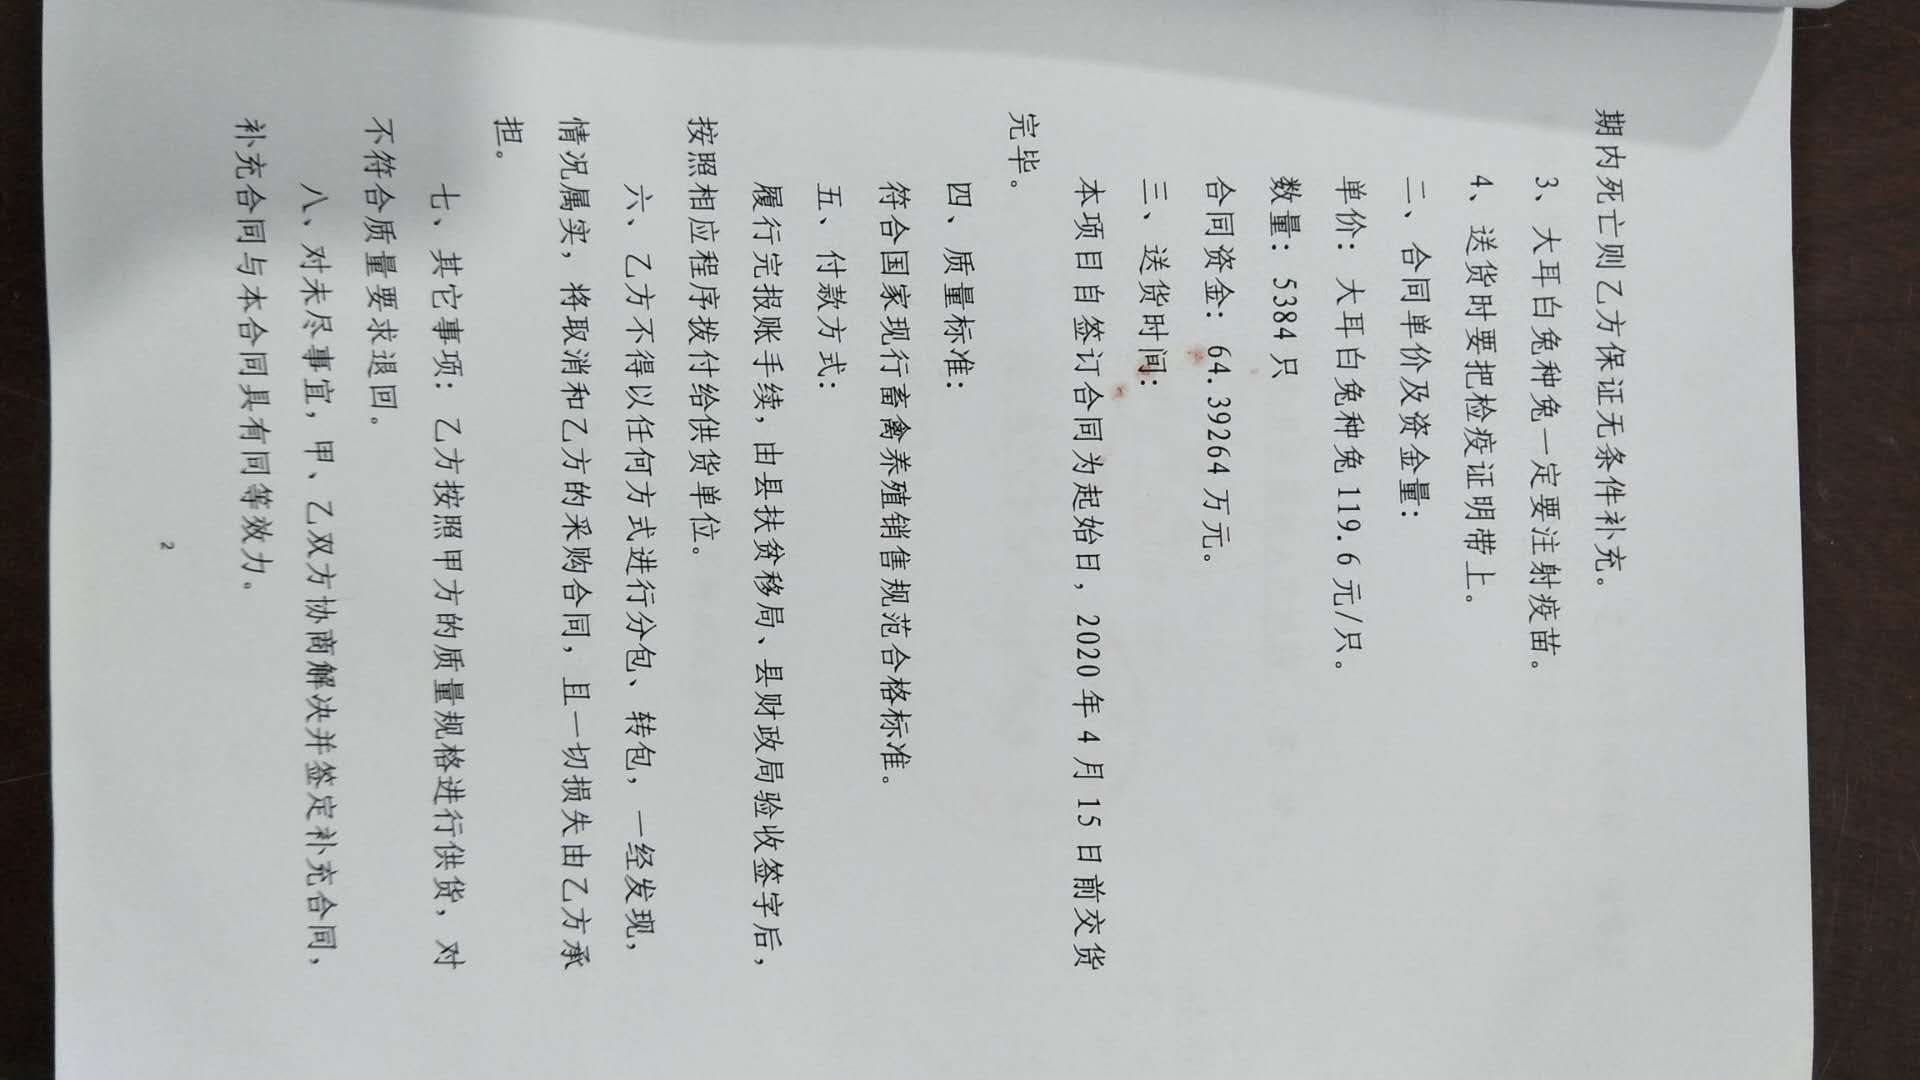 期内死亡则乙方保证无条件补充。
3、大耳白兔种兔一定要注射疫苗。
4、送货时要把检疫证明带上。
二、合同单价及资金量：
单价：大耳白兔种兔119.6元/只。
数量：5384只
合同资金：64.39264万元。
三、送货时间：
本项目自签订合同为起始日，2020年4月15日前交货
完毕。
四、质量标准：
符合国家现行畜禽养殖销售规范合格标准。
五、付款方式：
履行完报账手续，由县扶贫移局、县财政局验收签字后，
按照相应程序拨付给供货单位。
六、乙方不得以任何方式进行分包、转包，一经发现，
情况属实，将取消和乙方的采购合同，且一切损失由乙方承
担。
七、其它事项：乙方按照甲方的质量规格进行供货，对
不符合质量要求退回。
八、对未尽事宜，甲、乙双方协商解决并签定补充合同，
补充合同与本合同具有同等效力。
2